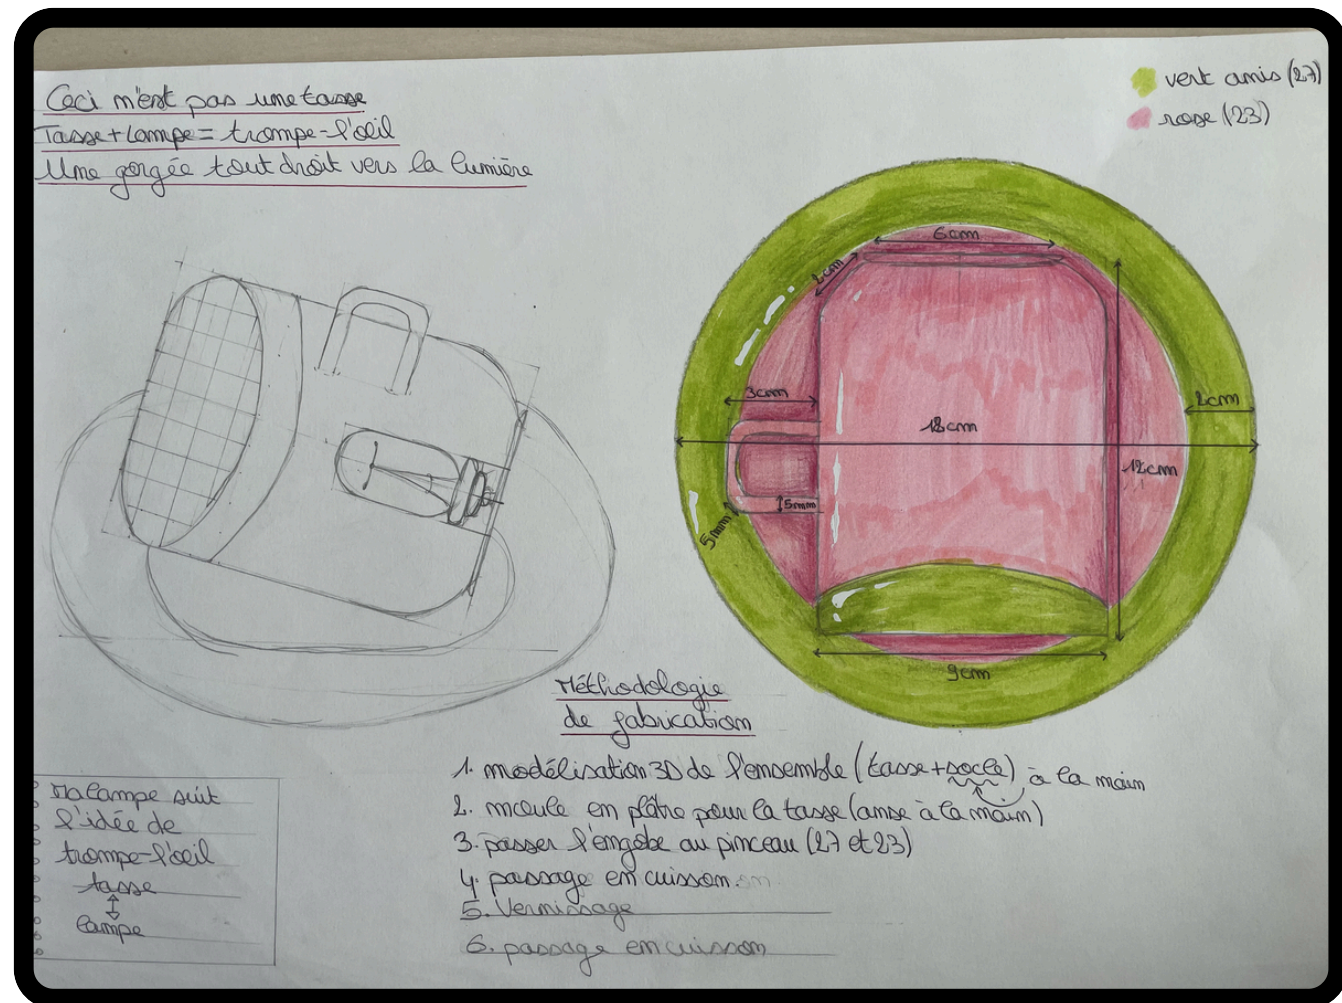 Ceci n'est pas une tasse
Tasse+Lampe= trompe-l'œil
Une gorgée tout droit vers la lumière
vert anis (27)
rose (23)
6cm
2cm
3cm
2cm
18cm
12cm
5mm
5mm
9cm
Méthodologie
de fabrication
1. modélisation 3D de l'ensemble (tasse+socle) à la main
2. moule en plâtre pour la tasse (anse à la main)
3. passer l'engobe au pinceau (27 et 23)
4. passage en cuisson
5. Vernissage
6. passage en cuisson
Ma lampe suit
l'idée de
trompe-l'œil
tasse
lampe